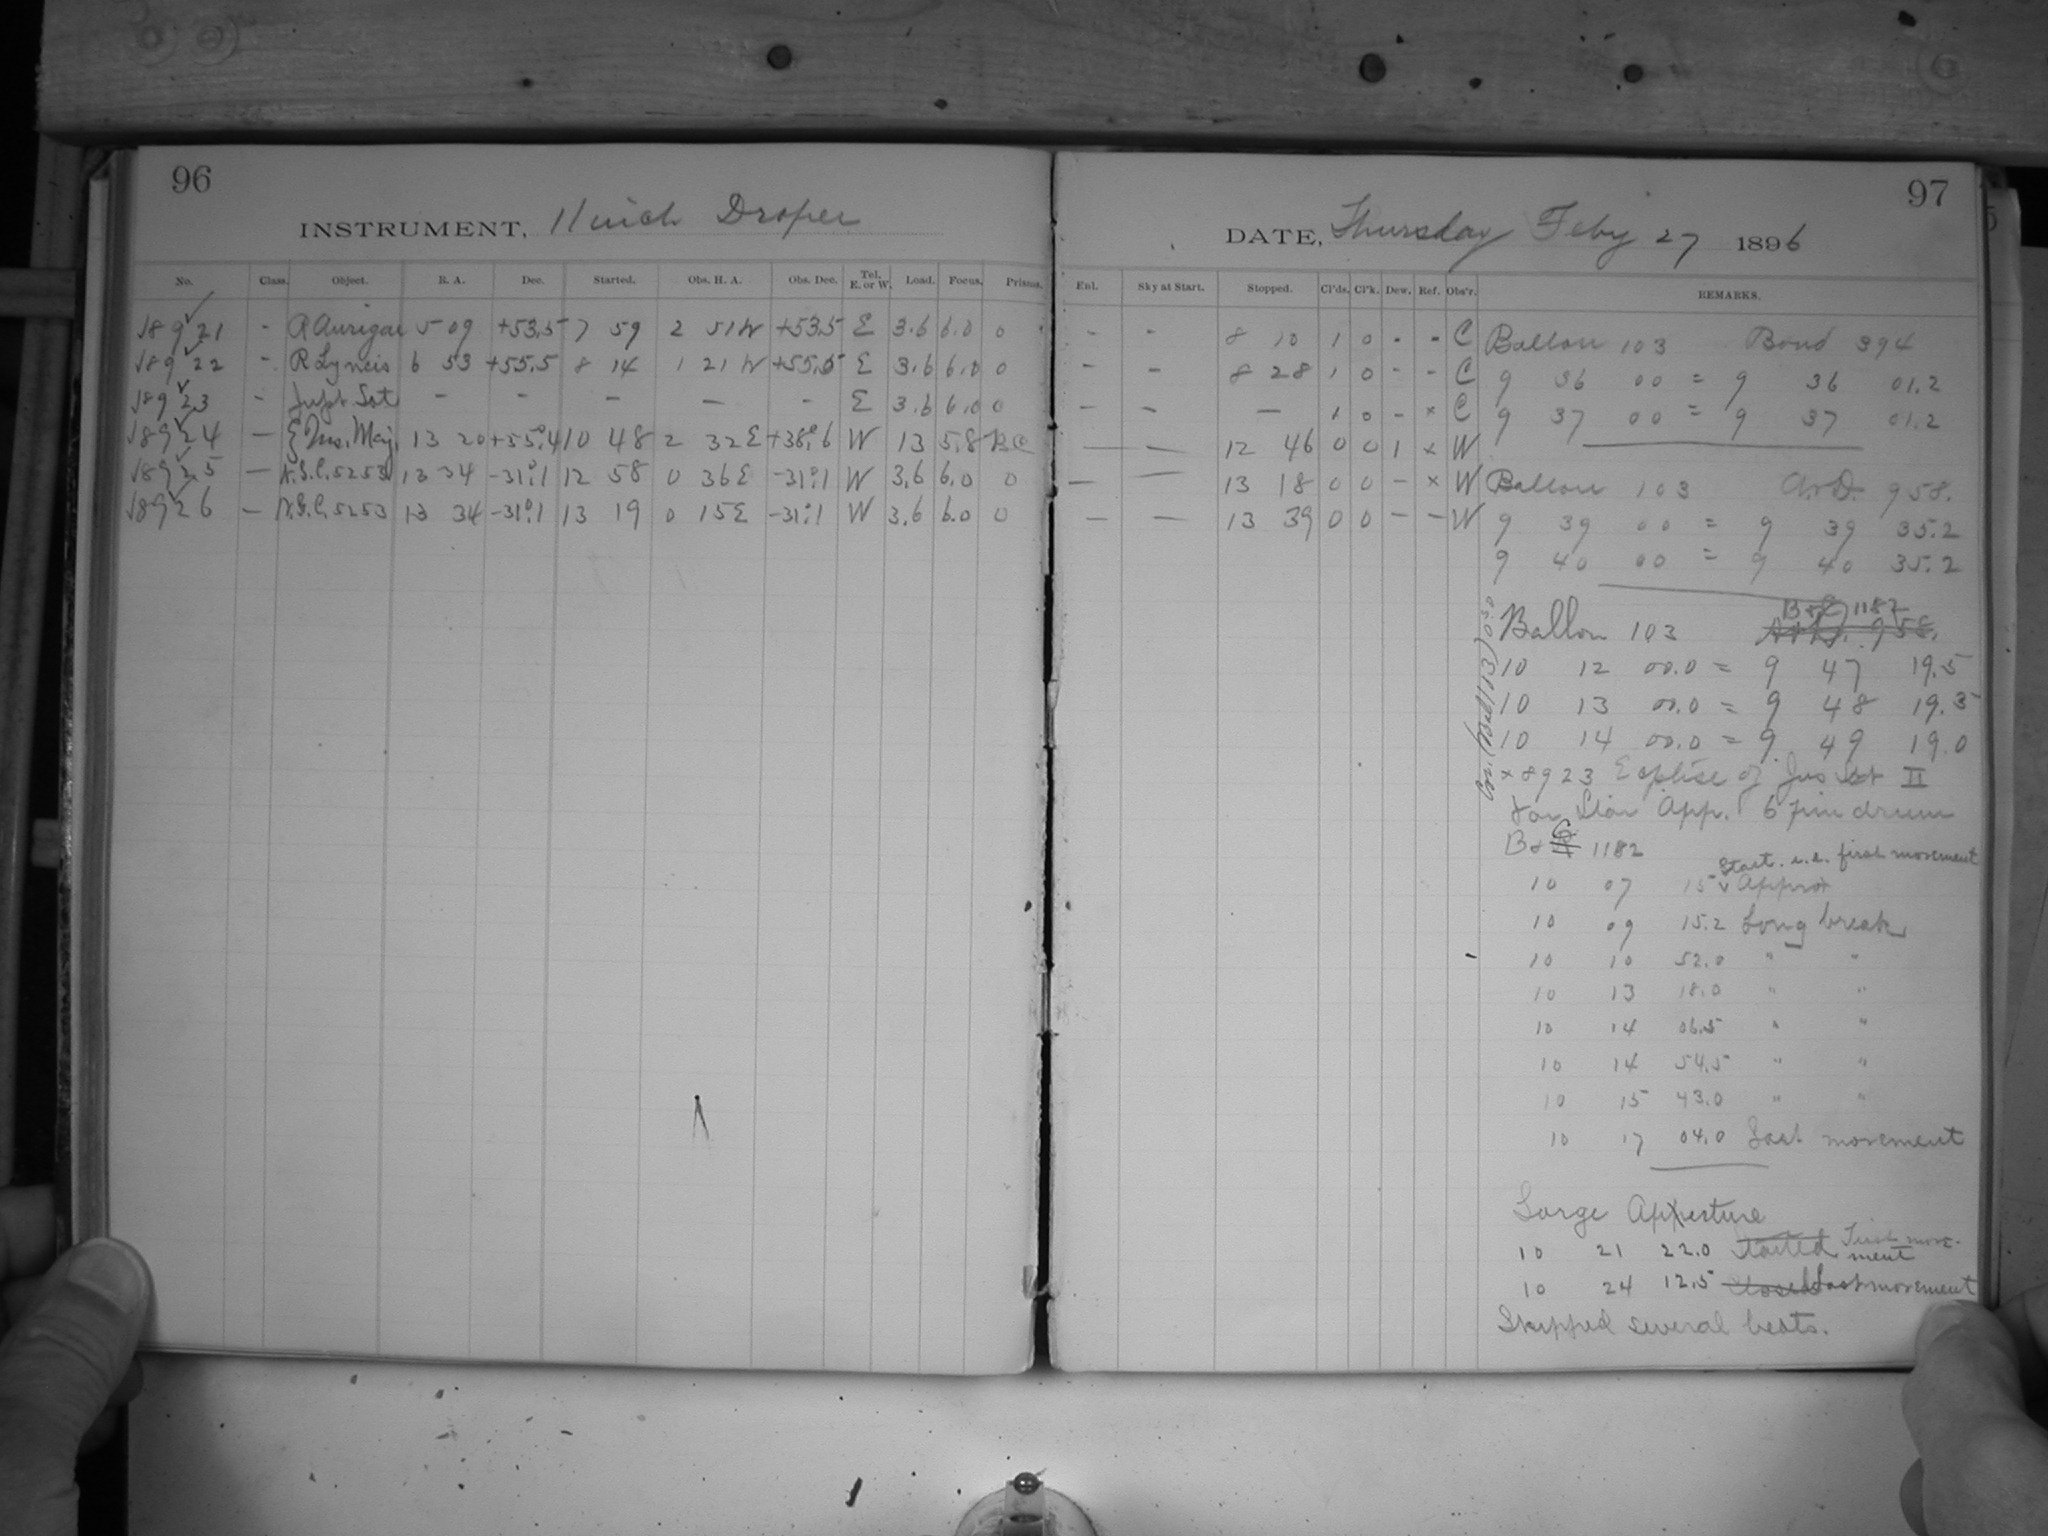 96
INSTRUMENT, 11 inch Draper
No. Class. Object. R. A. Dec. Started. Obs. H. A. Obs. Dec. Tel. E. or W. Load. Focus. Prisms.
18921 - R Aurigae 5 09 +53.5 7 59 2 51 W +53.5 E 3.6 6.0 0
18922 - R Lyncis 6 53 +55.5 8 14 1 21 W +55.5 E 3.6 6.0 0
18923 - Jup. Sat - - - - - E 3.6 6.0 0
18924 - ζ Urs. Maj. 13 20 +55.4 10 48 2 32 E W 13 5.8
18925 - N.G.C. 5253 13 34 -31°.1 12 58 0 36 E -31°.1 W 3.6 6.0 0
18926 - N.G.C. 5253 13 34 -31°.1 13 19 0 15 E -31°.1 W 3.6 6.0 0
97
DATE, Thursday Feby 27 1896
Enl. Sky at Start. Stopped. Cl'ds. Cl'k. Dew. Ref. Obs'r. REMARKS.
- - 8 10 1 0 - - C Ballou 103 Bond 394
- - 8 28 1 0 - - C 9 36 00 = 9 36 01.2
- - - 1 0 - x C 9 37 00 = 9 37 01.2
- - 12 46 0 0 1 x W
- - 13 18 0 0 - x W Ballou 103 A.&D. 958.
- - 13 39 0 0 - - W 9 39 00 = 9 39 35.2
9 40 00 = 9 40 35.2
B & C 1182
Ballou 103 A & D. 958.
10 12 00.0 = 9 47 19.5
10 13 00.0 = 9 48 19.3
10 14 00.0 = 9 49 19.0
x 8923 Eclipse of Jup Sat II
for Star App. 6 pin drum
B & C 1182
Start. i.e. first movement
10 07 15 Approx
10 09 15.2 Long break
10 10 52.0 " "
10 13 18.0 " "
10 14 06.5 " "
10 14 54.5 " "
10 15 43.0 " "
10 17 04.0 Last movement
Large Apperture
10 21 22.0 Started First movement
10 24 12.5 Closed Last movement
Skipped several beats.